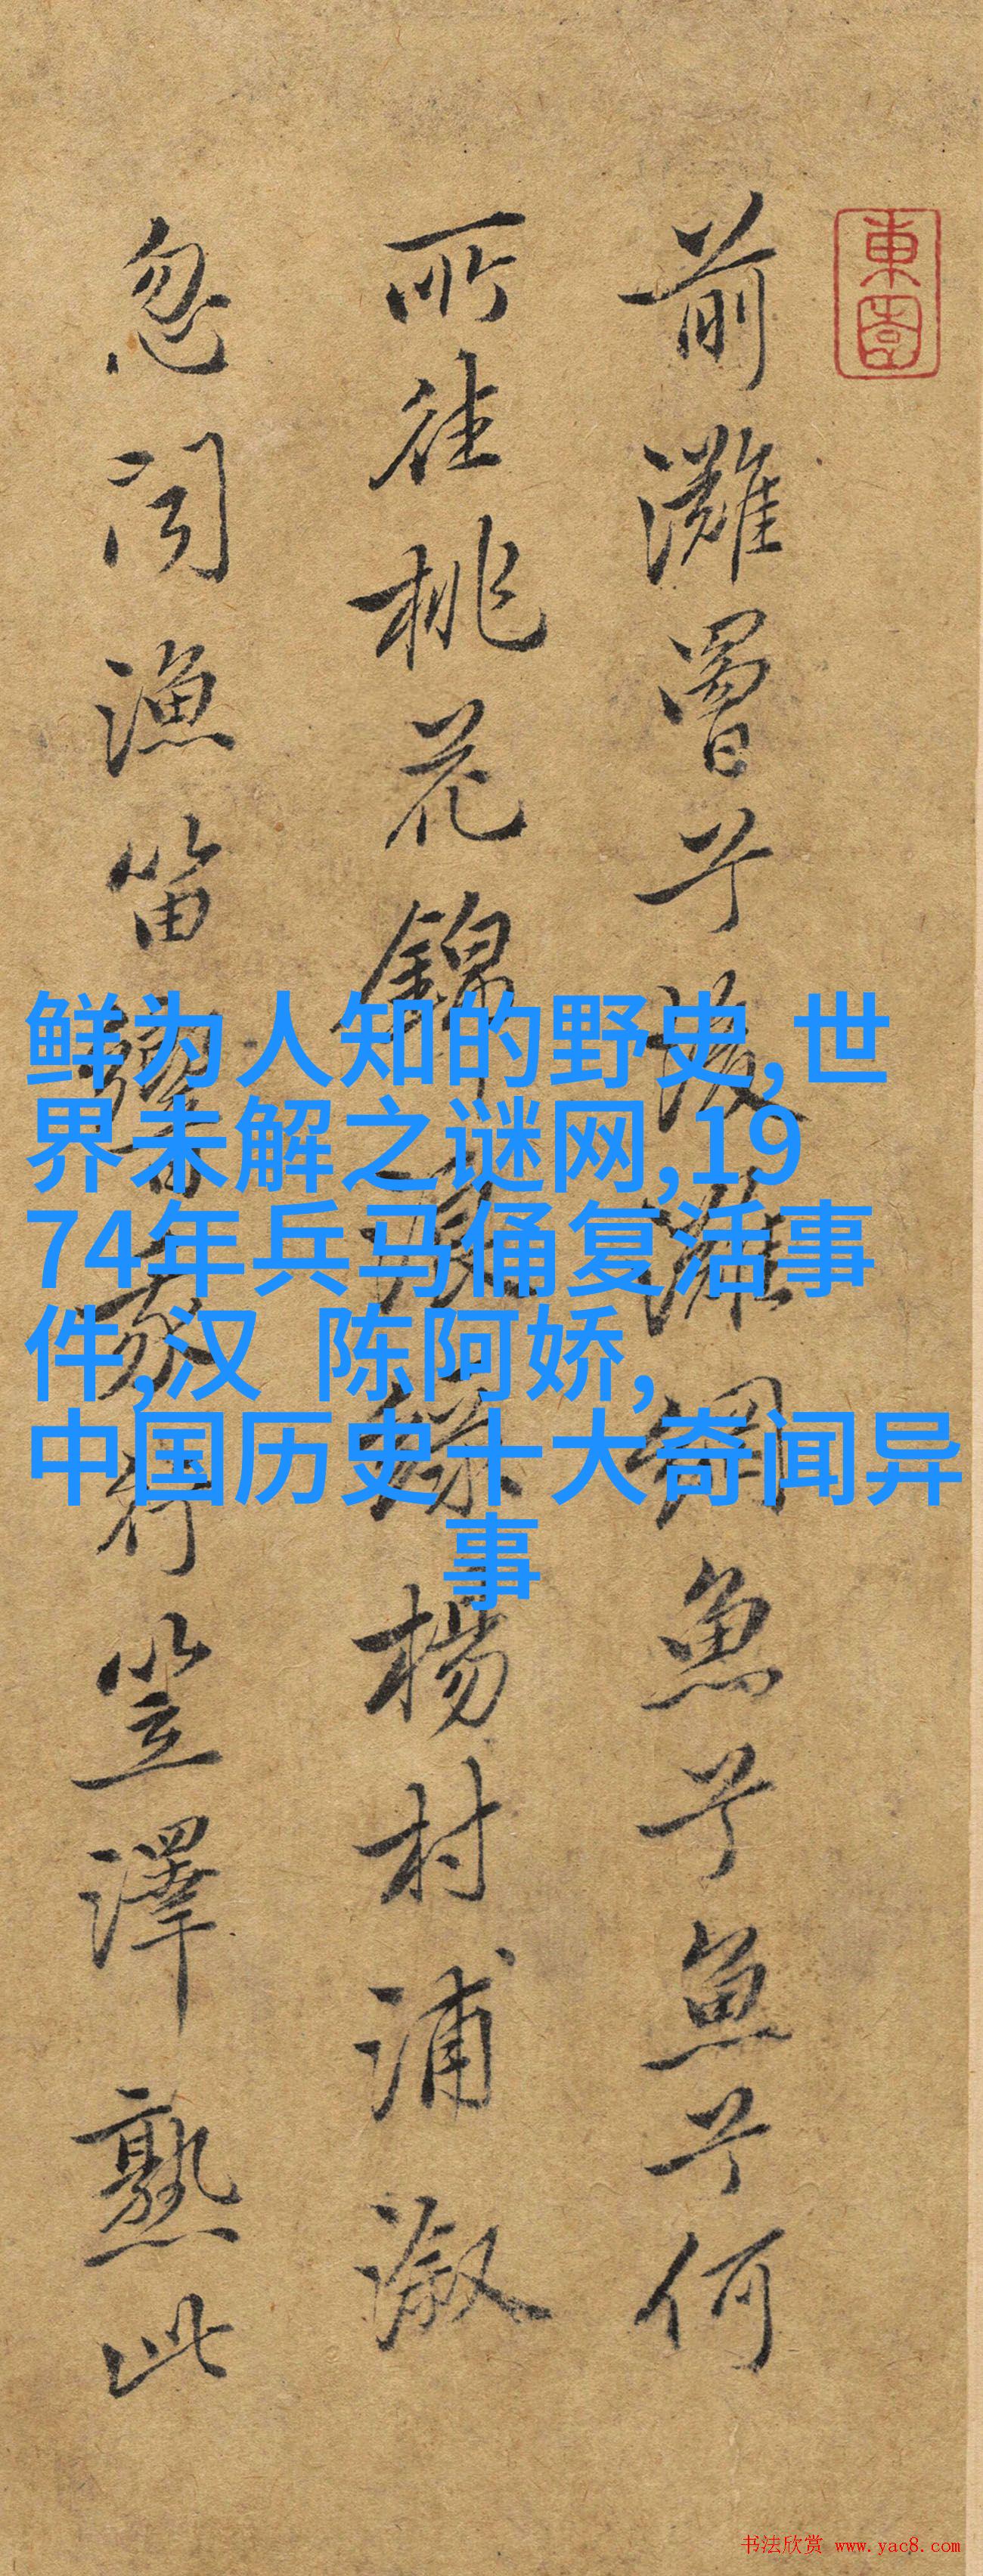 東圖
前灘罾兮後灘網魚兮魚兮何
所往桃花錦浪綠楊村浦溆
忽闻漁笛 行笠澤熟此
鲜为人知的野史,世
界未解之谜网,19
74年兵马俑复活事
件,汉 陈阿娇,
中国历史十大奇闻异
事
书法欣赏 www.yac8.com